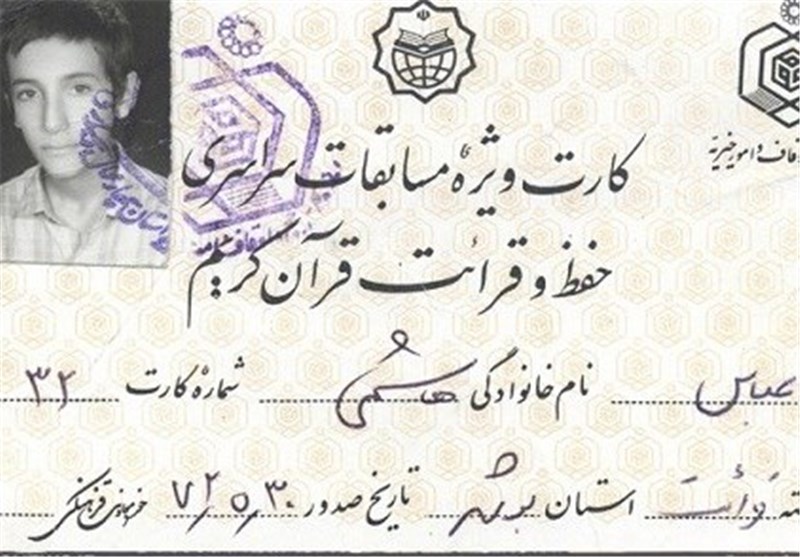 قاف و امور خیریه
کارت ویژه مسابقات سراسری
حفظ و قرائت قرآن کریم
عباس نام خانوادگی هاشمی شماره کارت ۳۲
ته قرائت استان بوشهر تاریخ صدور ۷۲/۵/۳۰